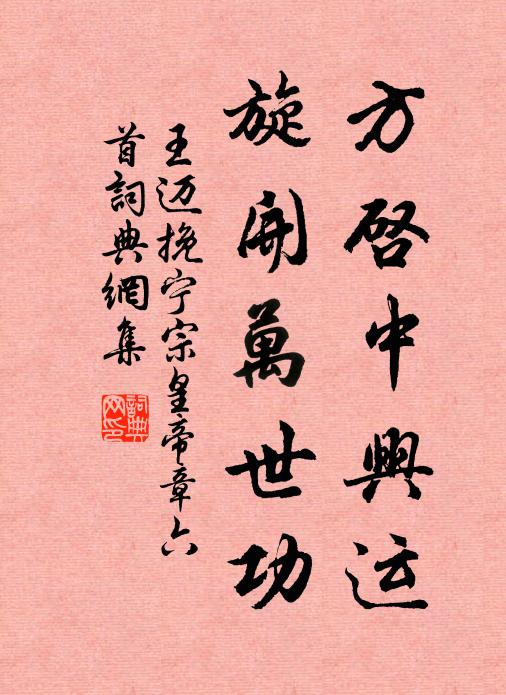 方启中興运
旋開萬世功
王迈挽宁宗皇帝章六
首詞典網集
詞典网印